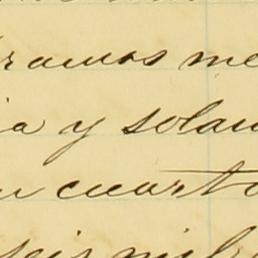 ramos me
ia y solam
n cuarto
seis mil